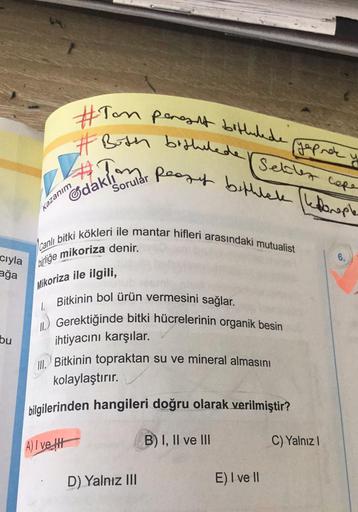 # Tam parazit bitkilerde (yaprak y
# Bütün bitkilerde
# Tam parazit bitkiler
Kazanım Odaklı Sorular
Canlı bitki kökleri ile mantar hifleri arasındaki mutualist
birliğe mikoriza denir.
Mikoriza ile ilgili,
I. Bitkinin bol ürün vermesini sağlar.
II. Gerektiğinde bitki hücrelerinin organik besin
ihtiyacını karşılar.
III. Bitkinin topraktan su ve mineral almasını
kolaylaştırır.
bilgilerinden hangileri doğru olarak verilmiştir?
A) I ve III
B) I, II ve III
C) Yalnız I
D) Yalnız III
E) I ve II
cıyla
ağa
bu
6.